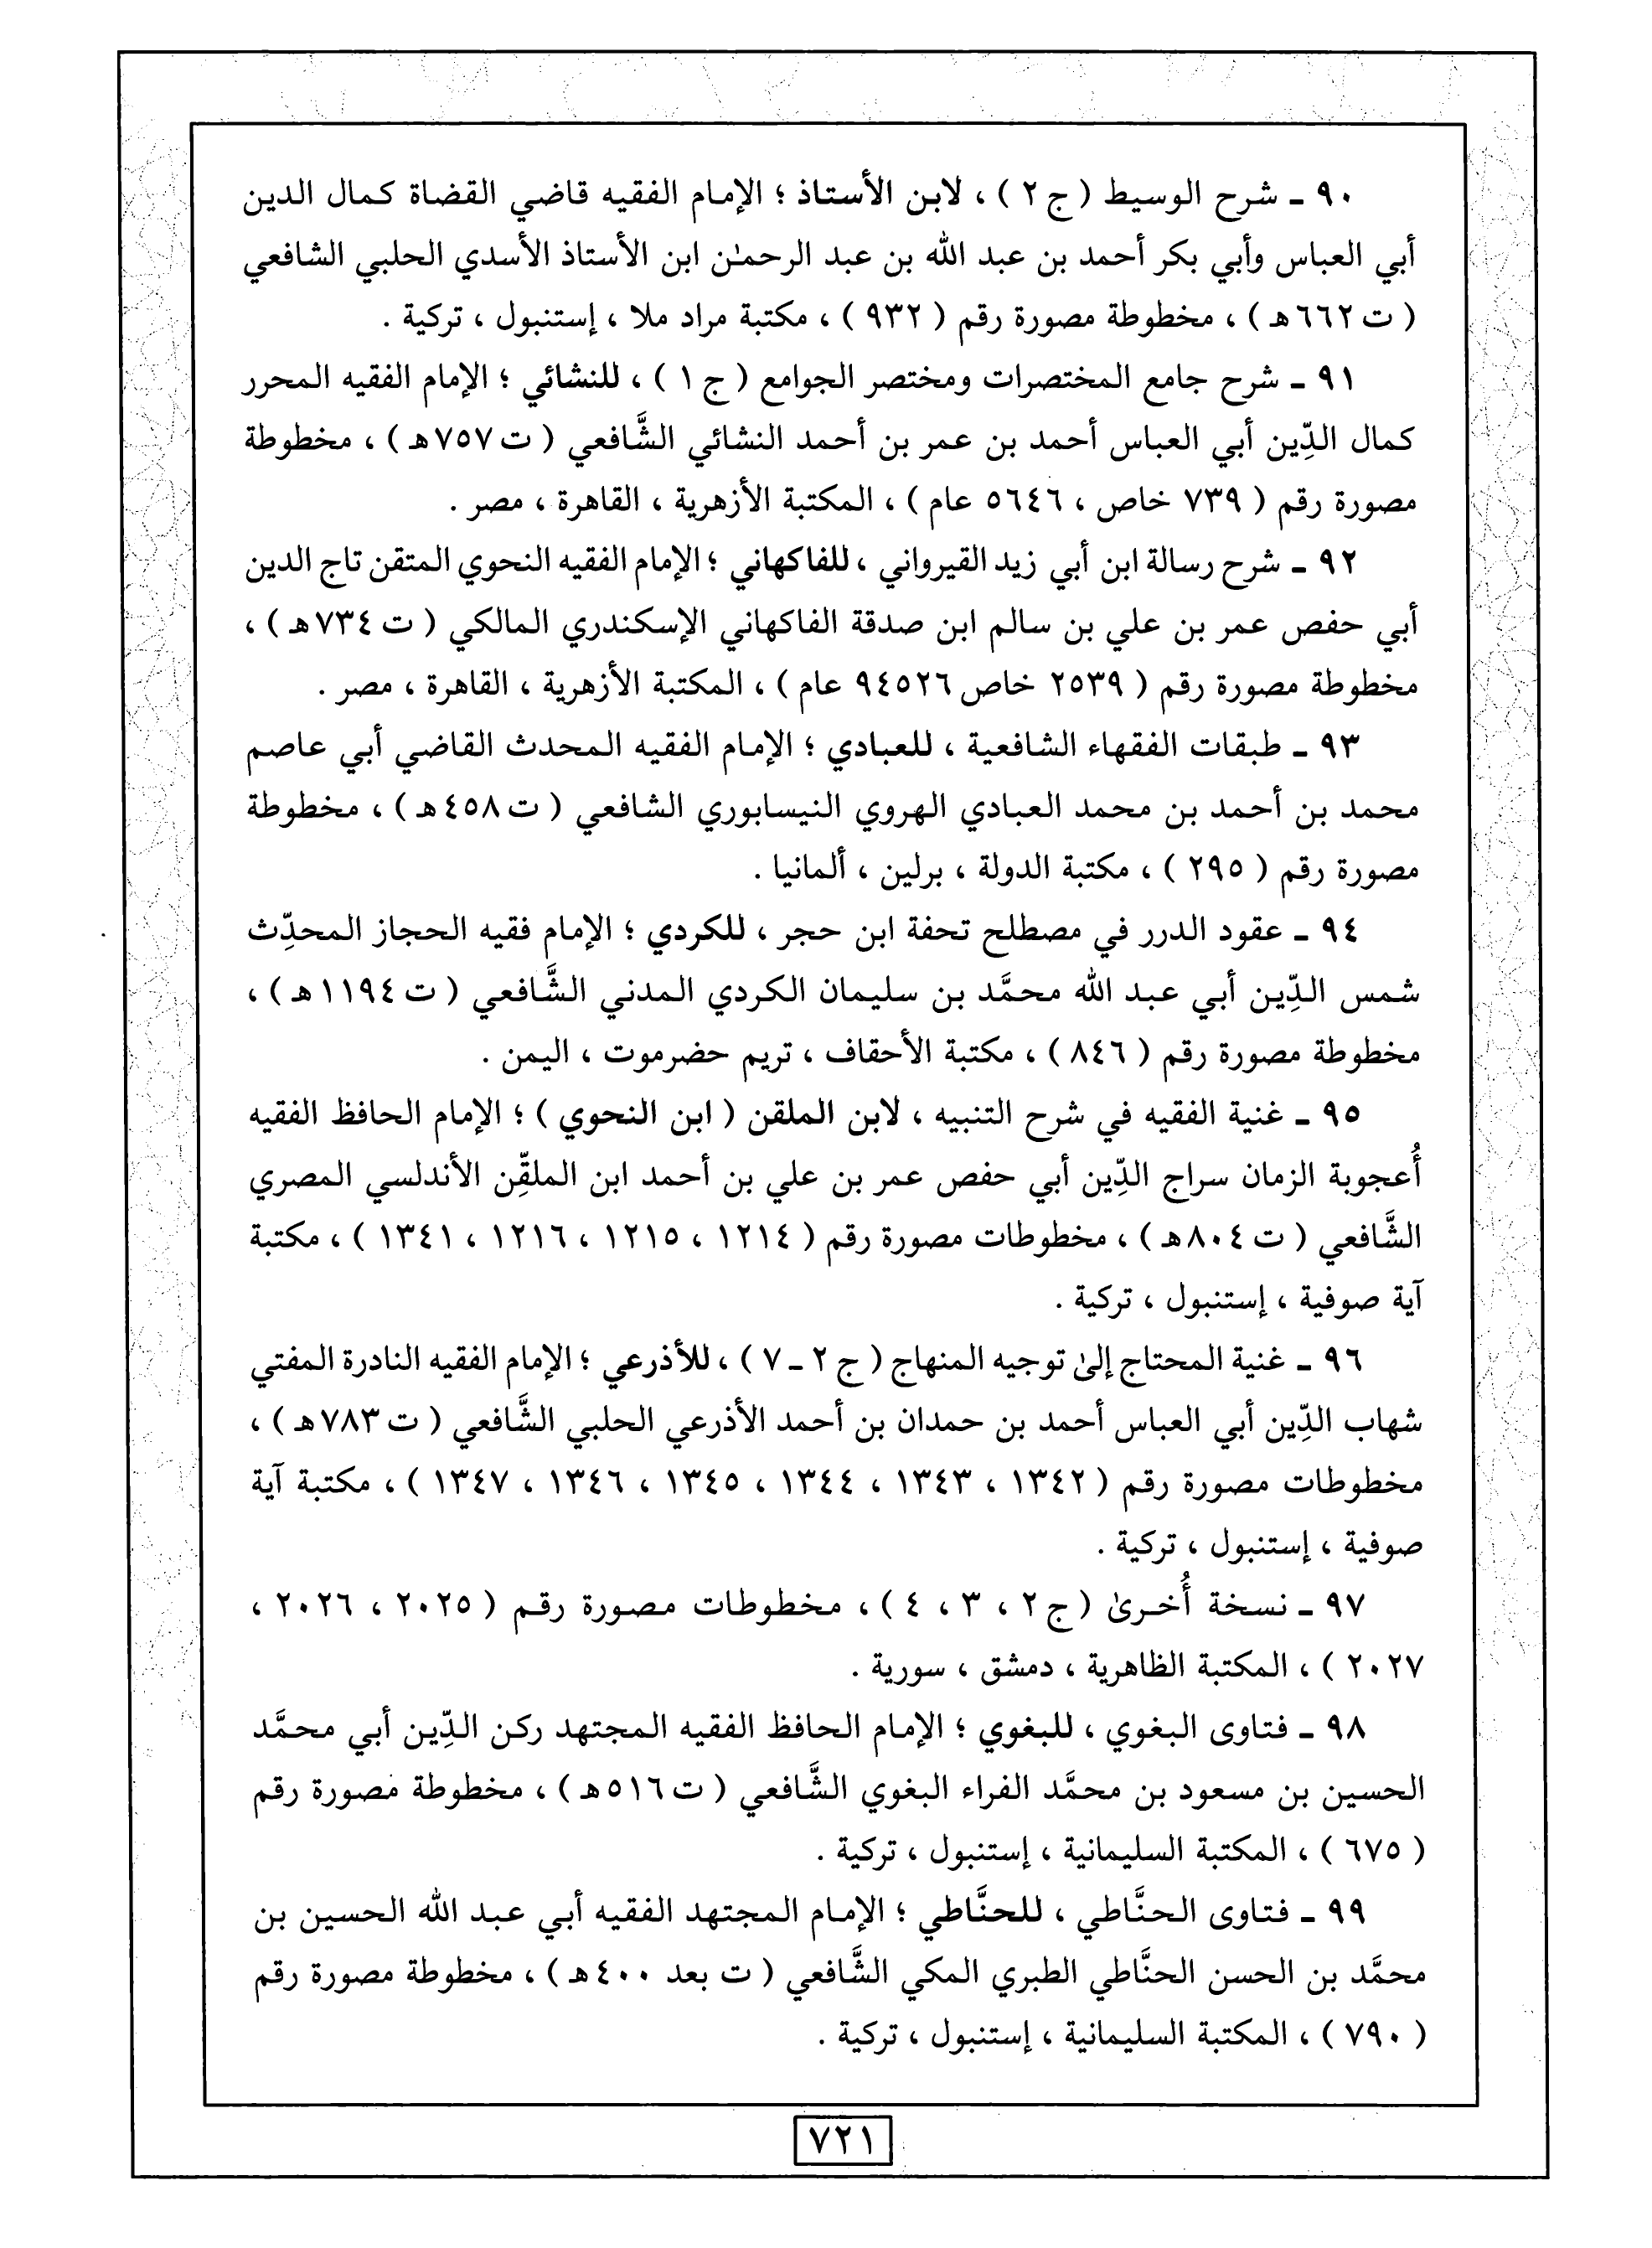 ٩٠ ـ شرح الوسيط ( ج ٢ ) ، لابن الأستاذ ؛ الإمام الفقيه قاضي القضاة كمال الدين
أبي العباس وأبي بكر أحمد بن عبد الله بن عبد الرحمـٰن ابن الأستاذ الأسدي الحلبي الشافعي
( ت ٦٦٢هـ ) ، مخطوطة مصورة رقم ( ٩٣٢ ) ، مكتبة مراد ملا ، إستنبول ، تركية .
٩١ ـ شرح جامع المختصرات ومختصر الجوامع ( ج ١ ) ، للنشائي ؛ الإمام الفقيه المحرر
كمال الدِّين أبي العباس أحمد بن عمر بن أحمد النشائي الشَّافعي ( ت ٧٥٧هـ ) ، مخطوطة
مصورة رقم ( ٧٣٩ خاص ، ٥٦٤٦ عام ) ، المكتبة الأزهرية ، القاهرة ، مصر .
٩٢ ـ شرح رسالة ابن أبي زيد القيرواني ، للفاكهاني ؛ الإمام الفقيه النحوي المتقن تاج الدين
أبي حفص عمر بن علي بن سالم ابن صدقة الفاكهاني الإسكندري المالكي ( ت ٧٣٤هـ ) ،
مخطوطة مصورة رقم ( ٢٥٣٩ خاص ٩٤٥٢٦ عام ) ، المكتبة الأزهرية ، القاهرة ، مصر .
٩٣ ـ طبقات الفقهاء الشافعية ، للعبادي ؛ الإمام الفقيه المحدث القاضي أبي عاصم
محمد بن أحمد بن محمد العبادي الهروي النيسابوري الشافعي ( ت ٤٥٨هـ ) ، مخطوطة
مصورة رقم ( ٢٩٥ ) ، مكتبة الدولة ، برلين ، ألمانيا .
٩٤ ـ عقود الدرر في مصطلح تحفة ابن حجر ، للكردي ؛ الإمام فقيه الحجاز المحدِّث
شمس الدِّين أبي عبد الله محمَّد بن سليمان الكردي المدني الشَّافعي ( ت ١١٩٤هـ ) ،
مخطوطة مصورة رقم ( ٨٤٦ ) ، مكتبة الأحقاف ، تريم حضرموت ، اليمن .
٩٥ ـ غنية الفقيه في شرح التنبيه ، لابن الملقن ( ابن النحوي ) ؛ الإمام الحافظ الفقيه
أُعجوبة الزمان سراج الدِّين أبي حفص عمر بن علي بن أحمد ابن الملقِّن الأندلسي المصري
الشَّافعي ( ت ٨٠٤هـ ) ، مخطوطات مصورة رقم ( ١٢١٤ ، ١٢١٥ ، ١٢١٦ ، ١٣٤١ ) ، مكتبة
آية صوفية ، إستنبول ، تركية .
٩٦ ـ غنية المحتاج إلىٰ توجيه المنهاج ( ج ٢ ـ ٧ ) ، للأذرعي ؛ الإمام الفقيه النادرة المفتي
شهاب الدِّين أبي العباس أحمد بن حمدان بن أحمد الأذرعي الحلبي الشَّافعي ( ت ٧٨٣هـ ) ،
مخطوطات مصورة رقم ( ١٣٤٢ ، ١٣٤٣ ، ١٣٤٤ ، ١٣٤٥ ، ١٣٤٦ ، ١٣٤٧ ) ، مكتبة آية
صوفية ، إستنبول ، تركية .
٩٧ ـ نسخة أُخرىٰ ( ج ٢ ، ٣ ، ٤ ) ، مخطوطات مصورة رقم ( ٢٠٢٥ ، ٢٠٢٦ ،
٢٠٢٧ ) ، المكتبة الظاهرية ، دمشق ، سورية .
٩٨ ـ فتاوى البغوي ، للبغوي ؛ الإمام الحافظ الفقيه المجتهد ركن الدِّين أبي محمَّد
الحسين بن مسعود بن محمَّد الفراء البغوي الشَّافعي ( ت ٥١٦هـ ) ، مخطوطة مصورة رقم
( ٦٧٥ ) ، المكتبة السليمانية ، إستنبول ، تركية .
٩٩ ـ فتاوى الحنَّاطي ، للحنَّاطي ؛ الإمام المجتهد الفقيه أبي عبد الله الحسين بن
محمَّد بن الحسن الحنَّاطي الطبري المكي الشَّافعي ( ت بعد ٤٠٠هـ ) ، مخطوطة مصورة رقم
( ٧٩٠ ) ، المكتبة السليمانية ، إستنبول ، تركية .
٧٢١